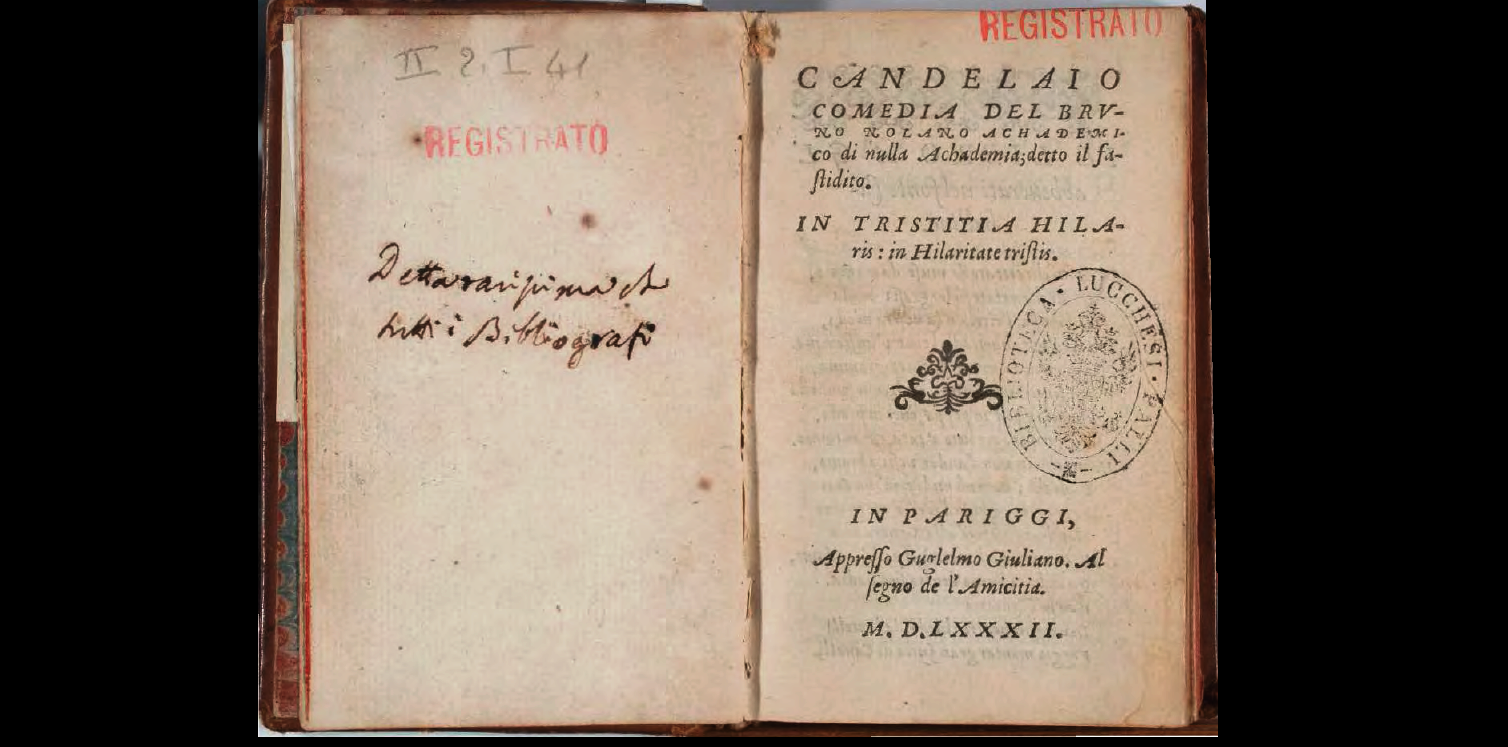 II 2. I 41
REGISTRATO
Detta rarissima da
tutti i Bibliografi
REGISTRATO
CANDELAIO
COMEDIA DEL BRV-
NO NOLANO ACHADEMI-
co di nulla Achademia; detto il fa-
stidito.
IN TRISTITIA HILA-
ris: in Hilaritate tristis.
BIBLIOTECA · LUCCHESI · PALLI
IN PARIGGI,
Appresso Guglelmo Giuliano. Al
segno de l'Amicitia.
M. D. LXXXII.